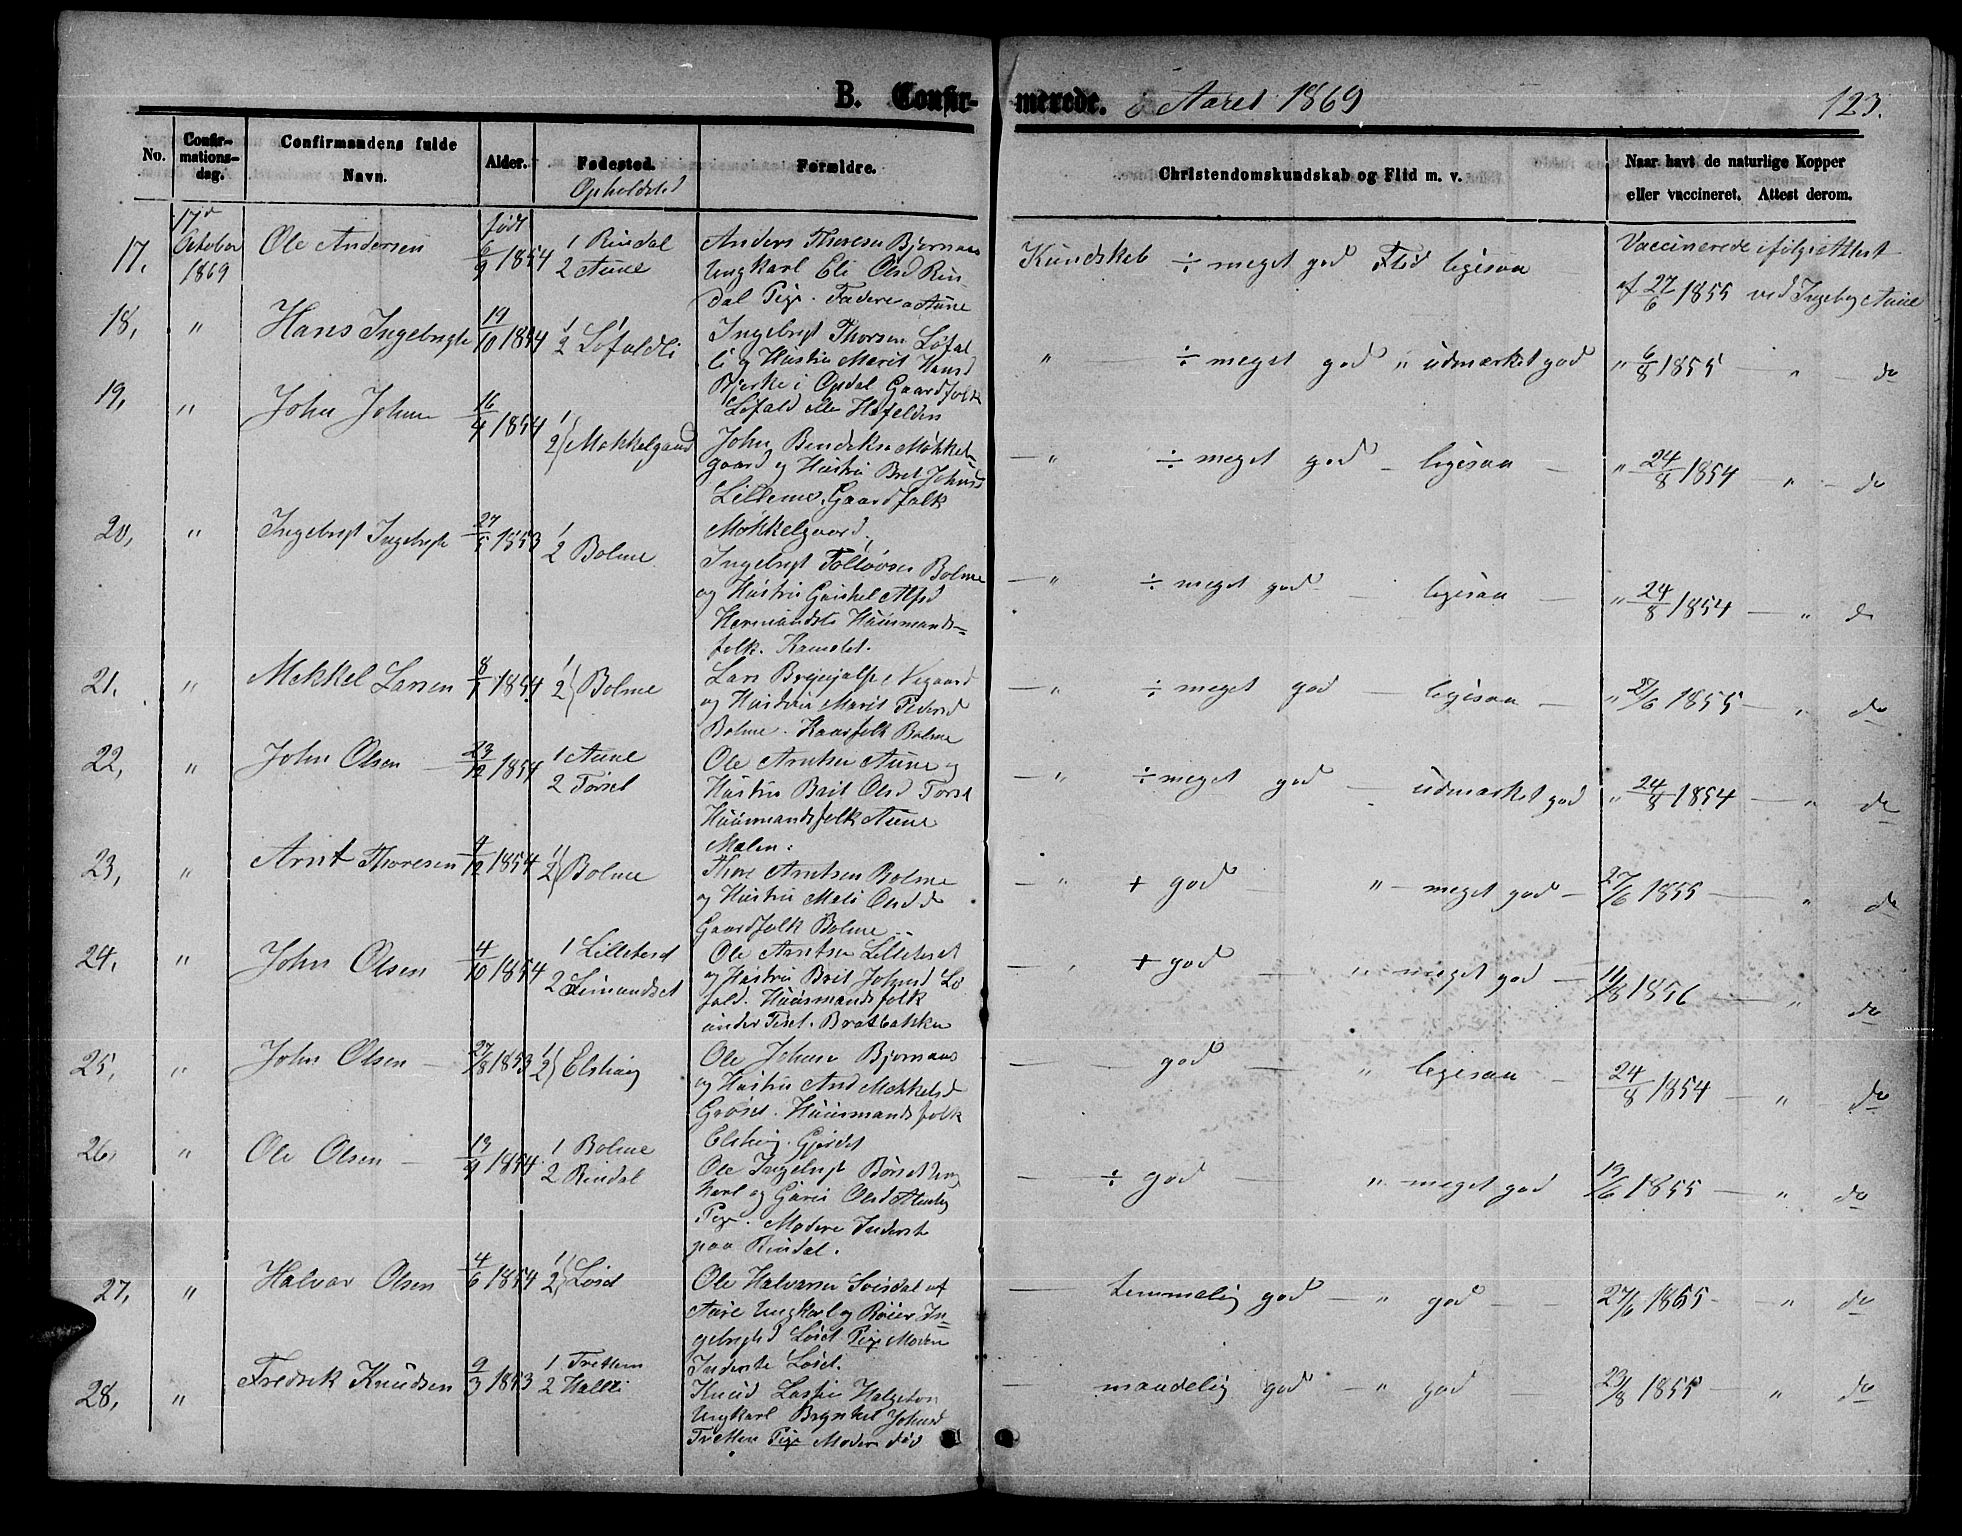 B. Confirmerede. i Aaret 1869 123.
No. Confirmationsdag. Confirmandens fulde Navn. Alder. Fødested. Opholdsted Forældre. Christendomskundskab og Flid m. v. Naar havt de naturlige Kopper eller vaccineret. Attest derom.
17. 17d October 1869 Ole Andersen født 6/9 1854 1 Rindal 2 Aune
Anders Thoresen Bjørnaas
Ungkarl Eli Olsd Rin-
dal Pige. Fadere Aune
Kundskab ÷ meget god Flid ligesaa Vaccinerede ifølge Attest
af 27/6 1855 ved Ingebrg Aune
18, " Hans Ingebrigts 19/10 1854 1 2 Løfaldli
Ingebrigt Thorsen Løfal
li og Hustru Marit Hansd
Bjerke i Opdal Gaardfolk
Løfald
" ÷ meget god " udmærket god " 6/8 1855 — " — do
19, " John Johns 16/4 1854 1 2 Mokkelgaard
John Bendiksen Mokkel-
gaard og Hustru Brit Johnsd
Lilleme. Gaardfolk
Mokkelgaard.
— " ÷ meget god — ligesaa — " 24/8 1854 — " — do
20, " Ingebrigt Ingebrigts 27/5 1853 1 2 Bolme
Ingebrigt Bolme
og Hustru Alfsd
Huusmands=
folk.
— " ÷ meget god — ligesaa — " 24/8 1854 — " do
21. " Mekkel Larsen 8/1 1854 1 2 Bolme
Lars Negaard
og Hustru Marit Pedersd
Bolme. Bolme
— " ÷ meget god — ligesaa — " 27/6 1855 — " do
22, " John Olsen — 23/12 1854 1 Aune 2 Torset
Ole Arntsen Aune og
Hustru Brit Olsd Torset
Huusmandsfolk Aune
Malen.
— " ÷ meget god — udmærket god " 24/8 1854 — " do
23, " Arnt Thoresen 4/12 1854 1 2 Bolme
Thore Arntsen Bolme
og Hustru Mali Olsd do
Gaardfolk Bolme
— " + god — " — meget god — 27/6 1855 — " do
24. " John Olsen 4/10 1854 1 Lilleteset 2 Limandset
Ole Arntsen Lilleteset
og Hustru Brit Johnsd Lø
fald. Huusmandsfolk
under Teset. Bratbakken
— " + god — " meget god — 14/8 1856 — " do
25, " John Olsen — 27/8 1853 1 2 Elshaug
Ole Johnsen Bjørnaas
og Hustru Mokkelsd
Grøset. Huusmandsfolk
Elshaug. Gjerdet
— god " ligesaa — 24/8 1854 — " do
26, " Ole Olsen — 19/4 1854 1 Bolme 2 Rindal
Ole Ingebrigt Børset Ung
karl og Olsd
Pige. Moders Inderst
paa Rindal.
— ÷ god — " meget god 19/6 1855 — " do
27, " Halvar Olsen 4/6 1854 1 2 Løset
Ole Halvarsen af
Aure Ungkarl og In=
gebrigtsd Løset Pige Moders
Inderste Løset.
— temmelig god — " god — 27/6 1855 — " do
28, " Fredrik Knudsen 9/3 1853 1 Trettem 2 Halsli
Knud Larsen
Ungkarl Brynhil Johnsd
Tretten Pige Moders død
— maadelig god — " god — 23/8 1855 — " do